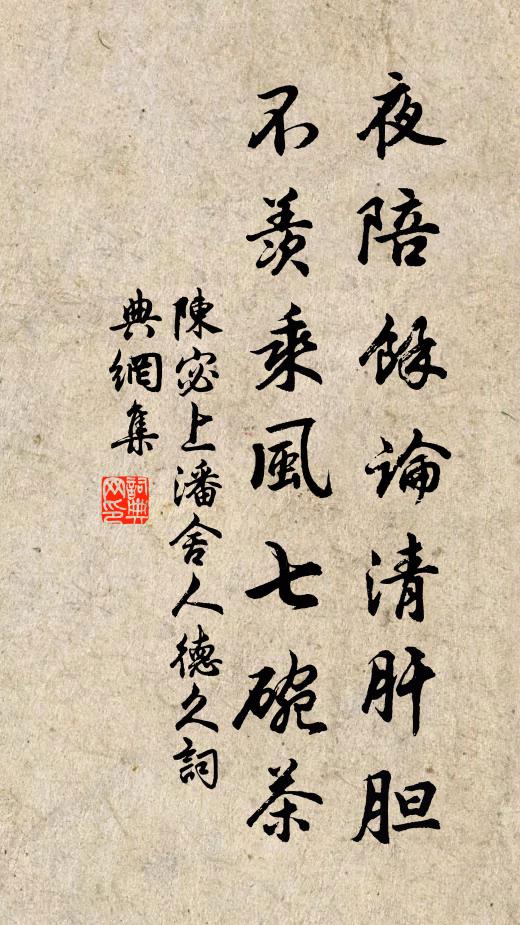 夜陪餘論清肝胆
不羨乘風七碗茶
陳宓上潘舍人德久詞
典網集
詞典网印